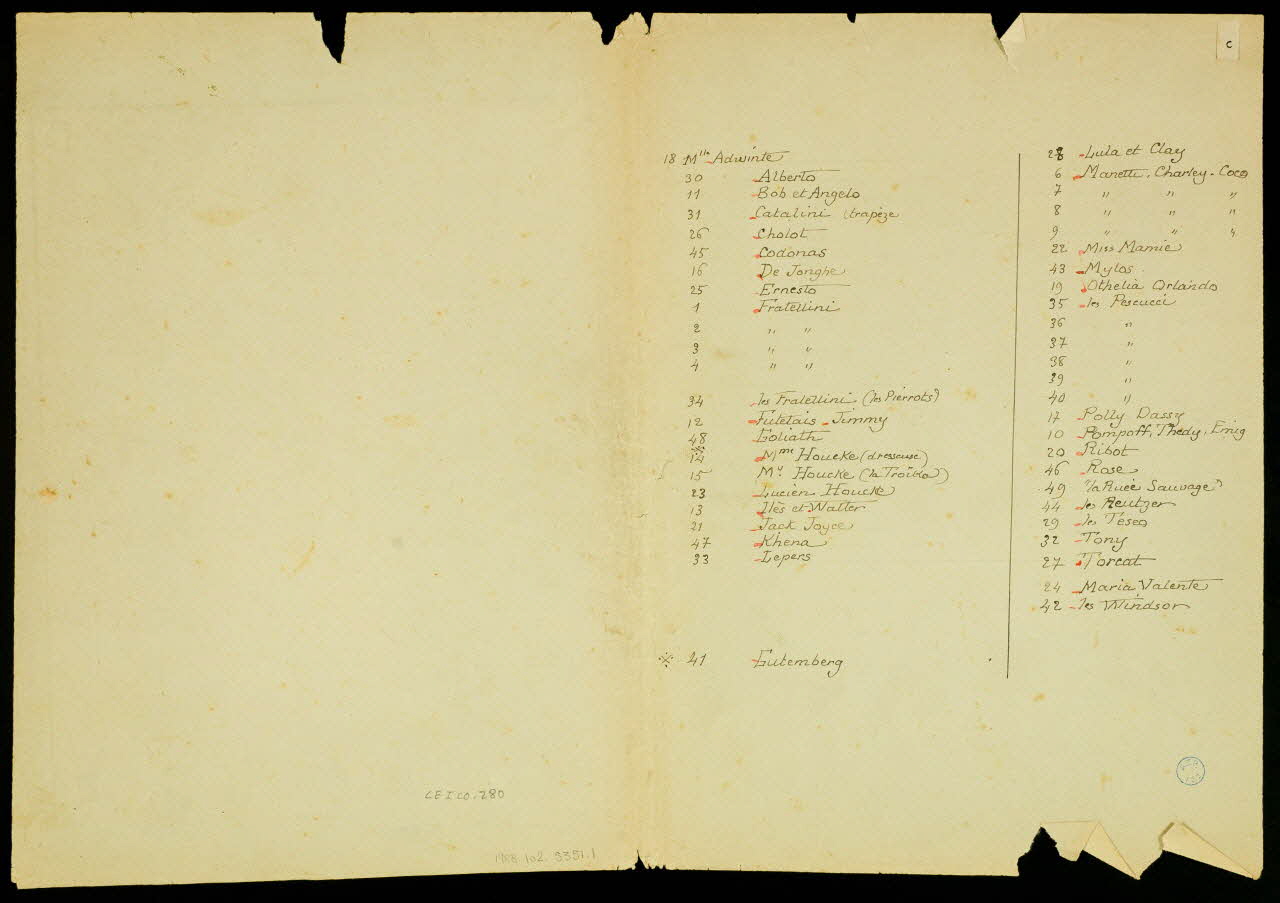 C
18 Mlle Adwinte
30 Alberto
11 Bob et Angelo
31 Catalini (trapèze
26 Cholot
45 Codonas
16 De Jonghe
25 Ernesto
1 Fratellini
2 " "
3 " "
4 " "
34 les Fratellini (les Pierrots)
12 Futelais - Jimmy
48 Goliath
14 Mme Houcke (dresseuse)
15 Mr Houcke (la Troïka)
23 Lucien Houcke
13 Ilès et Walter
21 Jack Joyce
47 Khena
33 Lepers
※ 41 Gutemberg
28 Lula et Clay
6 Manetti. Charley. Coco
7 " " "
8 " " "
9 " " "
22 Miss Mamie
43 Mylos
19 Othelia Orlando
35 les Pescucci
36 "
37 "
38 "
39 "
40 "
17 Polly Dassy
10 Pompoff, Thedy, Emig
20 Ribot
46 Rose
49 "la Ruée Sauvage"
44 les Reutzer
29 les Teseo
32 Tony
27 Torcat
24 Maria Valente
42 les Windsor
CEICO.280
1988 102. 5351.1